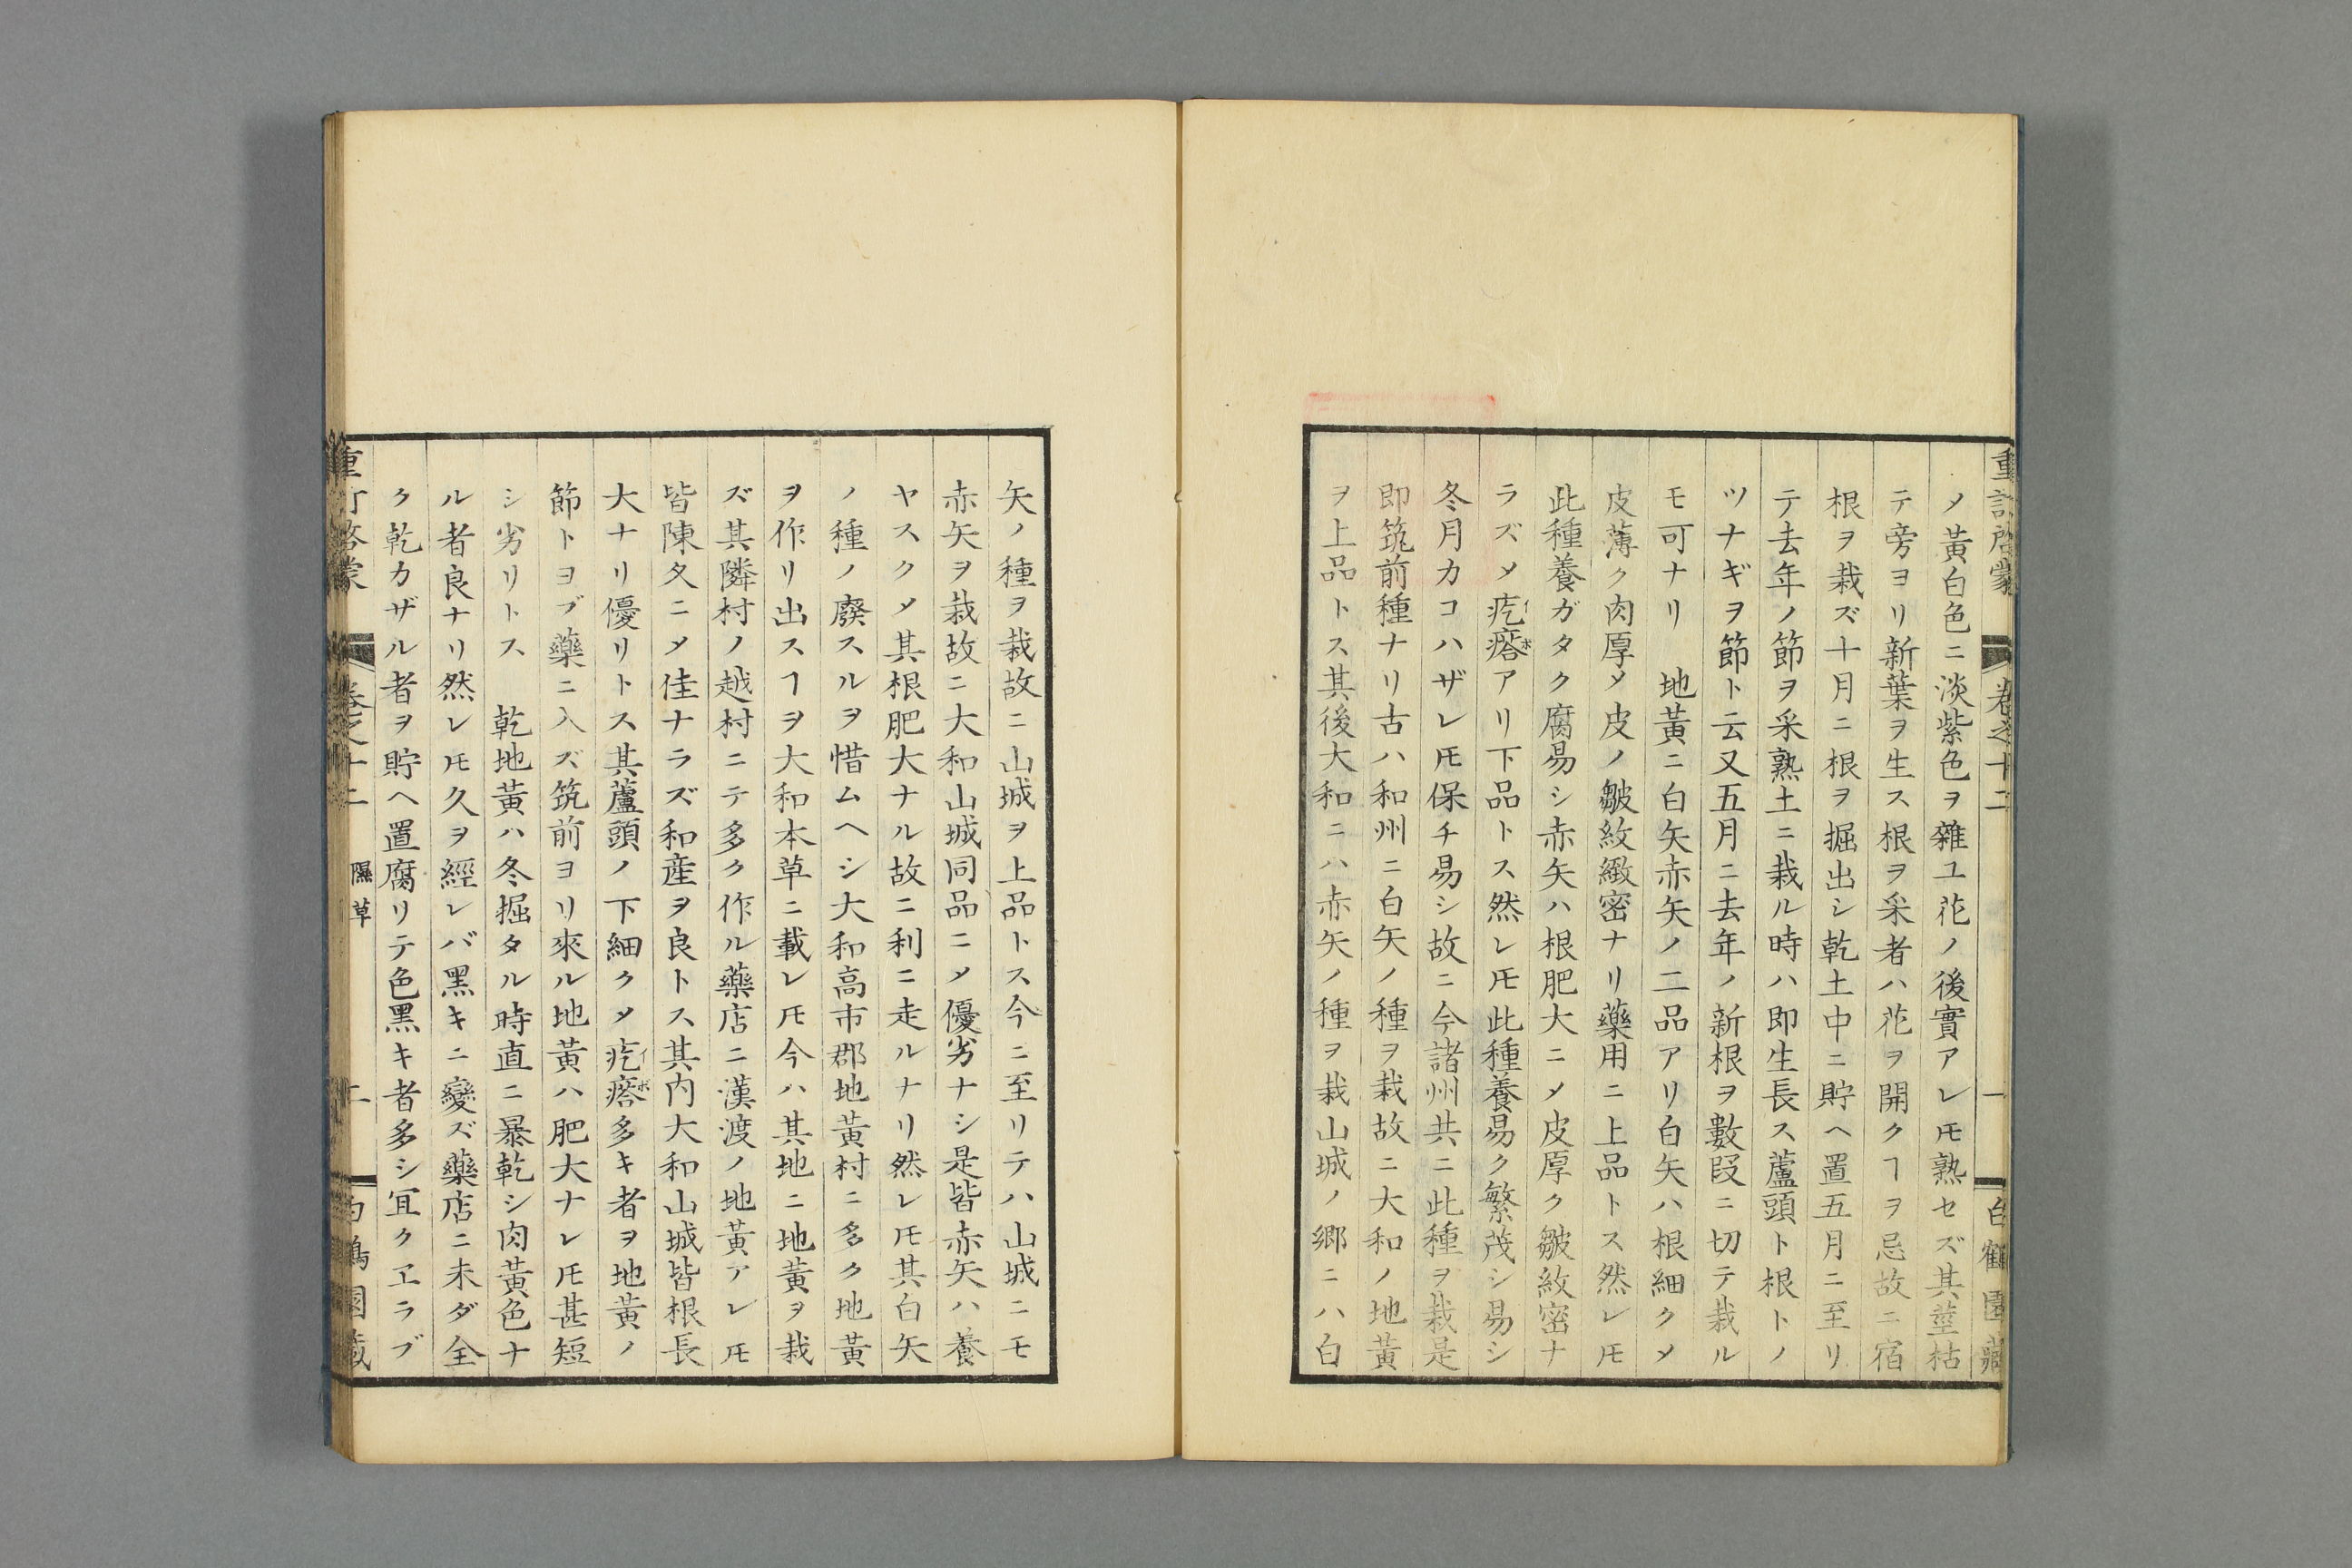 重訂啓蒙 卷之十二 一 白鶴園藏
メ黃白色ニ淡紫色ヲ雜ユ花ノ後實アレ𪜈熟セズ其莖枯
テ旁ヨリ新葉ヲ生ス根ヲ采者ハ花ヲ開クヿヲ忌故ニ宿
根ヲ栽ズ十月ニ根ヲ掘出シ乾土中ニ貯ヘ置五月ニ至リ
テ去年ノ節ヲ采熟土ニ栽ル時ハ即生長ス蘆頭ト根トノ
ツナギヲ節ト云又五月ニ去年ノ新根ヲ數段ニ切テ栽ル
モ可ナリ　地黃ニ白矢赤矢ノ二品アリ白矢ハ根細クメ
皮薄ク肉厚メ皮ノ皺紋緻密ナリ藥用ニ上品トス然レ𪜈
此種養ガタク腐易シ赤矢ハ根肥大ニメ皮厚ク皺紋密ナ
ラズメ疙瘩イボアリ下品トス然レ𪜈此種養易ク繁茂シ易シ
冬月カコハザレ𪜈保チ易シ故ニ今諸州共ニ此種ヲ栽是
即筑前種ナリ古ハ和州ニ白矢ノ種ヲ栽故ニ大和ノ地黃
ヲ上品トス其後大和ニハ赤矢ノ種ヲ栽山城ノ郷ニハ白
矢ノ種ヲ栽故ニ山城ヲ上品トス今ニ至リテハ山城ニモ
赤矢ヲ栽故ニ大和山城同品ニメ優劣ナシ是皆赤矢ハ養
ヤスクメ其根肥大ナル故ニ利ニ走ルナリ然レ𪜈其白矢
ノ種ノ廢スルヲ惜ムヘシ大和高市郡地黃村ニ多ク地黃
ヲ作リ出スヿヲ大和本草ニ載レ𪜈今ハ其地ニ地黃ヲ栽
ズ其隣村ノ越村ニテ多ク作ル藥店ニ漢渡ノ地黃アレ𪜈
皆陳久ニメ佳ナラズ和産ヲ良トス其内大和山城皆根長
大ナリ優リトス其蘆頭ノ下細クメ疙瘩イボ多キ者ヲ地黃ノ
節トヨブ藥ニ入ズ筑前ヨリ來ル地黃ハ肥大ナレ𪜈甚短
シ劣リトス　乾地黃ハ冬掘タル時直ニ暴乾シ肉黃色ナ
ル者良ナリ然レ𪜈久ヲ經レバ黑キニ變ズ藥店ニ未ダ全
ク乾カザル者ヲ貯ヘ置腐リテ色黑キ者多シ宜クヱラブ
重訂啓蒙 卷之十二 隰草 二 白鶴園藏